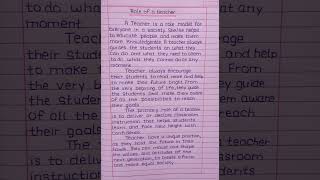 Role of a teacher
A Teacher is a role model for
Everyone in a society. She/He helps
to educate people and make them
more knowledgeable. A teacher always
guides the students on what they
can do and what they need to learn
to do, what they cannot do at any
moment.
Teacher, always Encourage
their students to read more and help
to make their future bright. From
the very begining of life, they guide
the Students and make them aware
of all the possibilities to reach
their goals.
The primary role of a teacher
is to deliver or declare classroom
instruction that helps students
learn, and face new height with
confidence.
Teacher, have a unique position,
as they hold the future in their
hands. They can mould and shape
the values and attitudes of the
next generation, to create a more
and equal society.